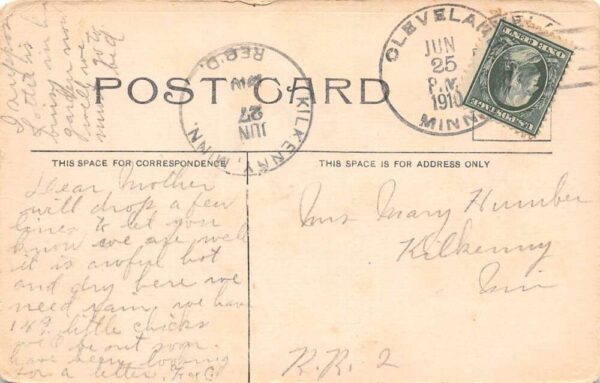 POST CARD
CLEVELAND
JUN
25
P.M.
1910
MINN.
KILKENNY, MINN.
REC'D.
JUN
27
AM
U.S. POSTAGE
ONE CENT
THIS SPACE FOR CORRESPONDENCE
THIS SPACE IS FOR ADDRESS ONLY
in his
garden now
well we
Dear Mother
will drop a few
lines to let you
know we are well
it is awful hot
and dry here we
need rain, we have
149 little chicks
will be out soon.
have been looking
for a letter.
Mrs Mary Humber
Kilkenny
Min
R.R. 2